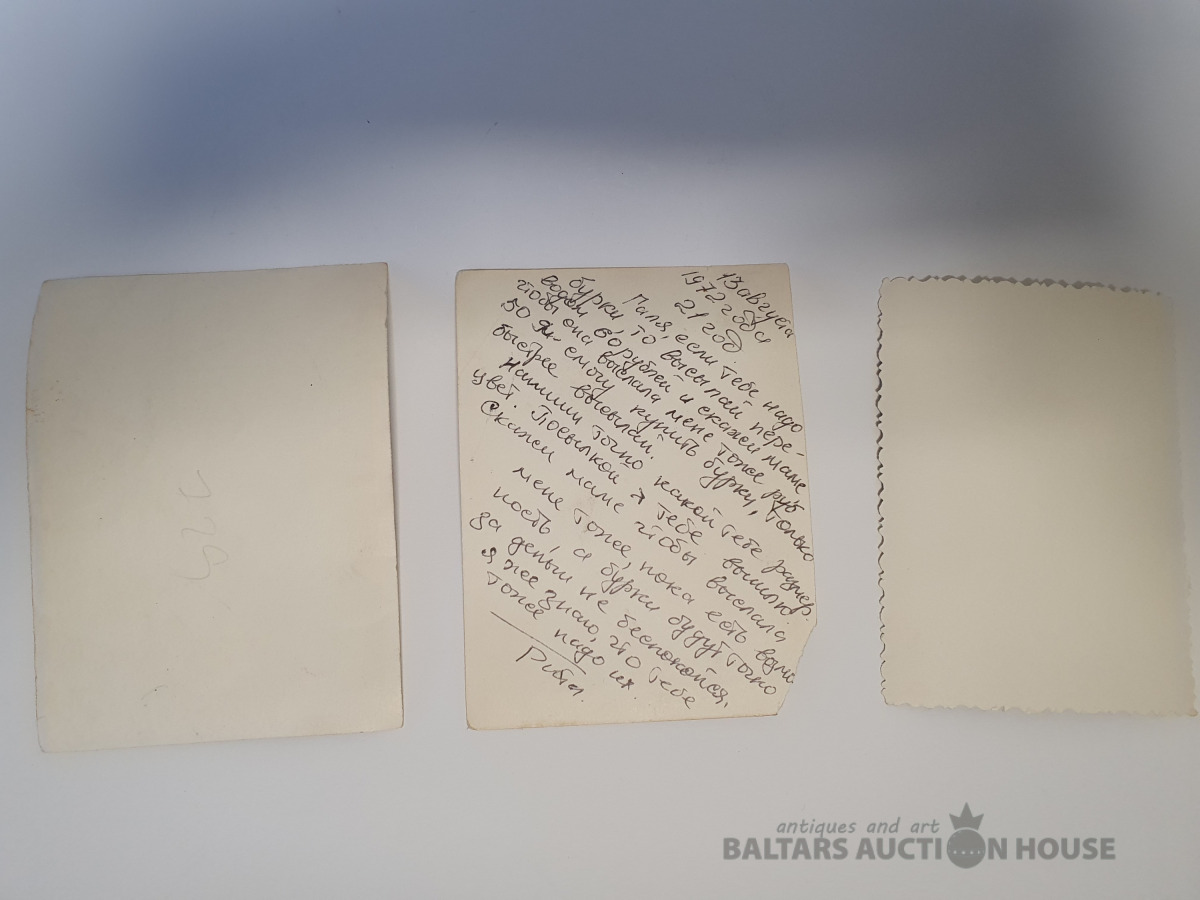 13 августа
1972 года
21 год
если тебе надо
бурки, то высылай пере-
водом 50 рублей и скажи маме
чтобы она выслала мене тоже руб
50 я смогу купить бурки, только
быстрее высылай.
Напиши точно какой тебе размер
цвет. Посылкой я тебе вышлю.
Скажи маме чтобы выслала
мене тоже, пока есть возмо
ность, а бурки будут точно
за деньги не беспокойся,
я же знаю, что тебе
тоже надо их.
antiques and art
BALTARS AUCTION HOUSE